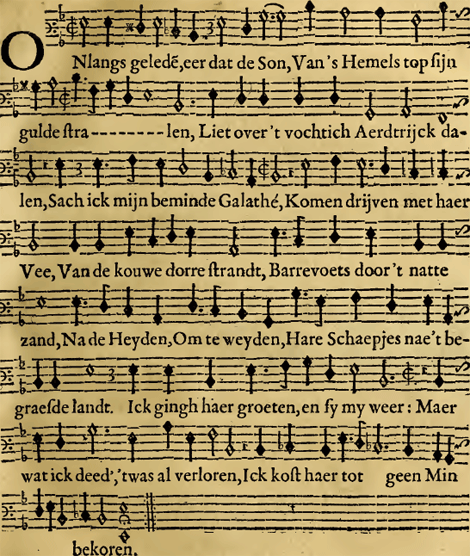 ONlangs geledẽ,eer dat de Son,Van's Hemels top sijn
gulde stra----------len, Liet over't vochtich Aerdtrijck da-
len,Sach ick mijn beminde Galathé,Komen drijven met haer
Vee, Van de kouwe dorre strandt, Barrevoets door't natte
zand,Na de Heyden,Om te weyden,Hare Schaepjes nae't be-
graesde landt. Ick gingh haer groeten,en sy my weer: Maer
wat ick deed','twas al verloren,Ick kost haer tot geen Min
bekoren.